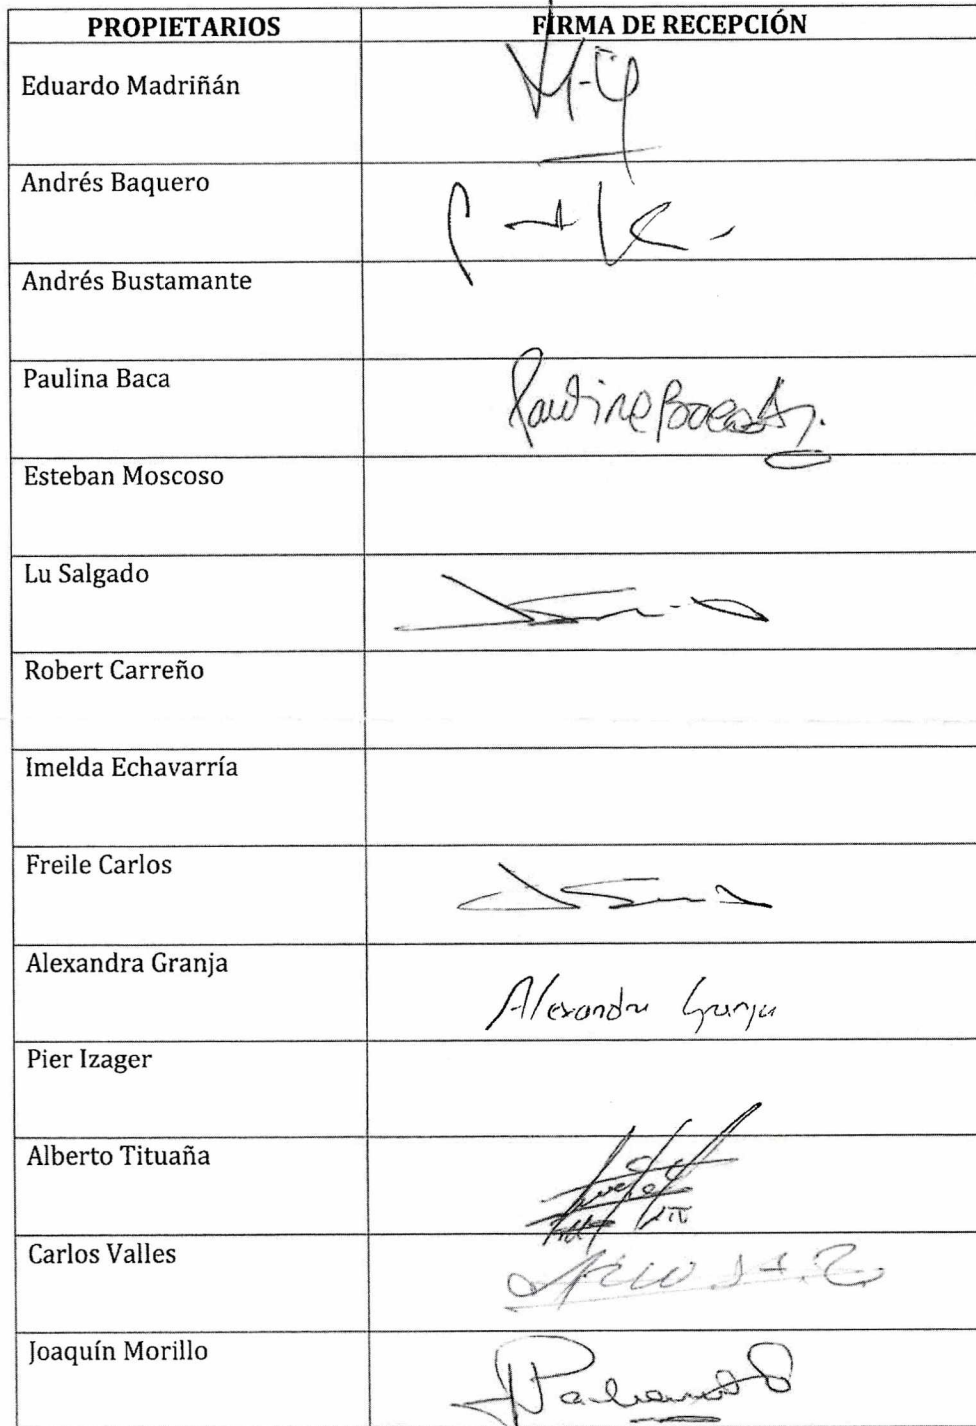 PROPIETARIOS FIRMA DE RECEPCIÓN
Eduardo Madriñán
Andrés Baquero
Andrés Bustamante
Paulina Baca
Esteban Moscoso
Lu Salgado
Robert Carreño
Imelda Echavarría
Freile Carlos
Alexandra Granja Alexandra Granja
Pier Izager
Alberto Tituaña
Carlos Valles
Joaquín Morillo